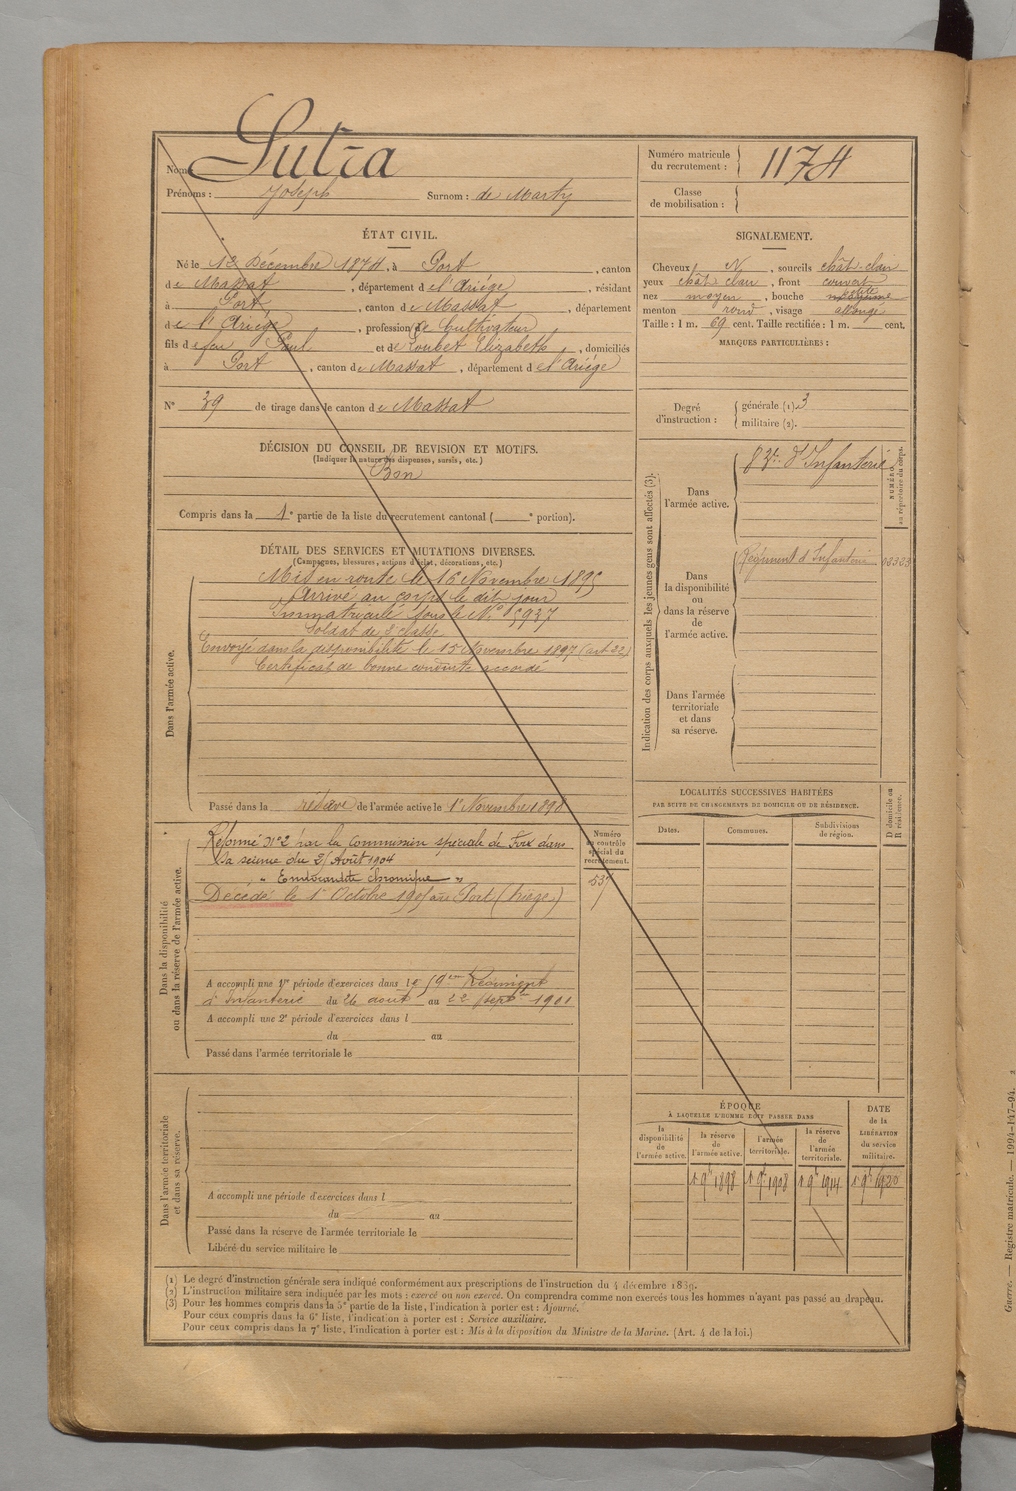 Nom : Sutra
Prénoms : Joseph Surnom : de Marty
Numéro matricule du recrutement : 1174
Classe de mobilisation :
ÉTAT CIVIL.
Né le 12 Décembre 1874, à Port, canton
de Massat, département de l'Ariége, résidant
à Port, canton de Massat, département
de l'Ariége, profession de Cultivateur
fils de feu Paul et de Loubet Elizabeth, domiciliés
à Port, canton de Massat, département de l'Ariége
N° 39 de tirage dans le canton de Massat
SIGNALEMENT.
Cheveux N, sourcils chât-clair
yeux chât clair, front couvert
nez moyen, bouche petite
menton rond, visage allongé
Taille : 1 m. 69 cent. Taille rectifiée : 1 m. cent.
MARQUES PARTICULIÈRES :
Degré d'instruction : générale (1) 3
militaire (2).
DÉCISION DU CONSEIL DE REVISION ET MOTIFS.
(Indiquer la nature des dispenses, sursis, etc.)
Bon
Compris dans la 1e partie de la liste du recrutement cantonal ( e portion).
DÉTAIL DES SERVICES ET MUTATIONS DIVERSES.
(Campagnes, blessures, actions d'éclat, décorations, etc.)
Dans l'armée active.
Mis en route le 16 Novembre 1895
Arrivé au corps le dit jour
Immatriculé sous le N° 5937
Soldat de 2e classe
Envoyé dans la disponibilité le 15 Novembre 1897 (art 22)
Certificat de bonne conduite accordé
Passé dans la réserve de l'armée active le 1er Novembre 1898
Dans la disponibilité
ou dans la réserve de l'armée active.
Réformé N°2 par la Commission spéciale de Foix dans
sa séance du 21 Août 1904
" Endocardite chronique "
Décédé le 1er Octobre 1905 au Port (Ariège)
A accompli une 1re période d'exercices dans le 59eme Régiment
d'Infanterie du 26 août au 22 septbre 1901
A accompli une 2e période d'exercices dans l
du au
Passé dans l'armée territoriale le
Numéro
au contrôle
spécial du
recrutement.
Dans l'armée territoriale
et dans sa réserve.
A accompli une période d'exercices dans l
du au
Passé dans la réserve de l'armée territoriale le
Libéré du service militaire le
Indication des corps auxquels les jeunes gens sont affectés (3).
NUMÉRO
au répertoire du corps.
Dans
l'armée active.
83e d'Infanterie
Dans
la disponibilité
ou
dans la réserve
de
l'armée active.
Régiment d'Infanterie
Dans l'armée
territoriale
et dans
sa réserve.
LOCALITÉS SUCCESSIVES HABITÉES
PAR SUITE DE CHANGEMENTS DE DOMICILE OU DE RÉSIDENCE.
Dates.
Communes.
Subdivisions
de région.
D domicile ou
R résidence.
ÉPOQUE
À LAQUELLE L'HOMME DOIT PASSER DANS
la
disponibilité
de
l'armée active.
la réserve
de
l'armée active.
l'armée
territoriale.
la réserve
de
l'armée
territoriale.
DATE
de la
LIBÉRATION
du service
militaire.
1 9b 1898
1 9b 1908
1 9b 1914
1 9b 1920
(1) Le degré d'instruction générale sera indiqué conformément aux prescriptions de l'instruction du 4 décembre 1889.
(2) L'instruction militaire sera indiquée par les mots : exercé ou non exercé. On comprendra comme non exercés tous les hommes n'ayant pas passé au drapeau.
(3) Pour les hommes compris dans la 5e partie de la liste, l'indication à porter est : Ajourné.
Pour ceux compris dans la 6e liste, l'indication à porter est : Service auxiliaire.
Pour ceux compris dans la 7e liste, l'indication à porter est : Mis à la disposition du Ministre de la Marine. (Art. 4 de la loi.)
Guerre. — Registre matricule. — 1994-147-94.